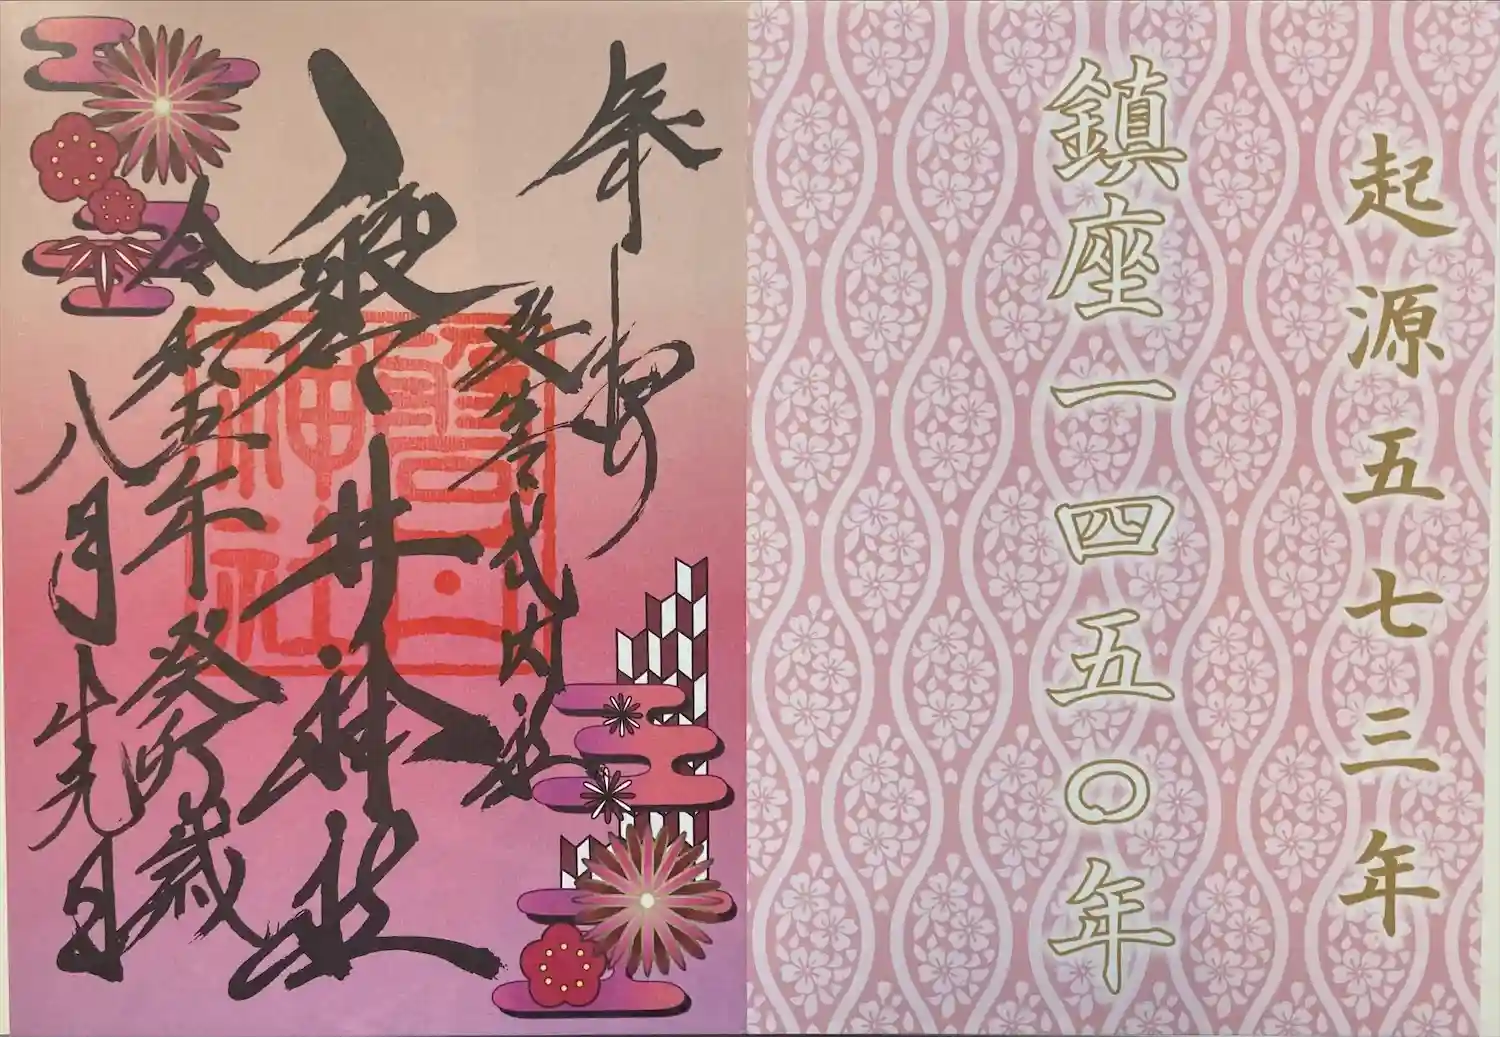 起源五七三年
鎮座一四五〇年
奉拝
式内社
井神社
令和五年
癸卯歳
八月
日
神社